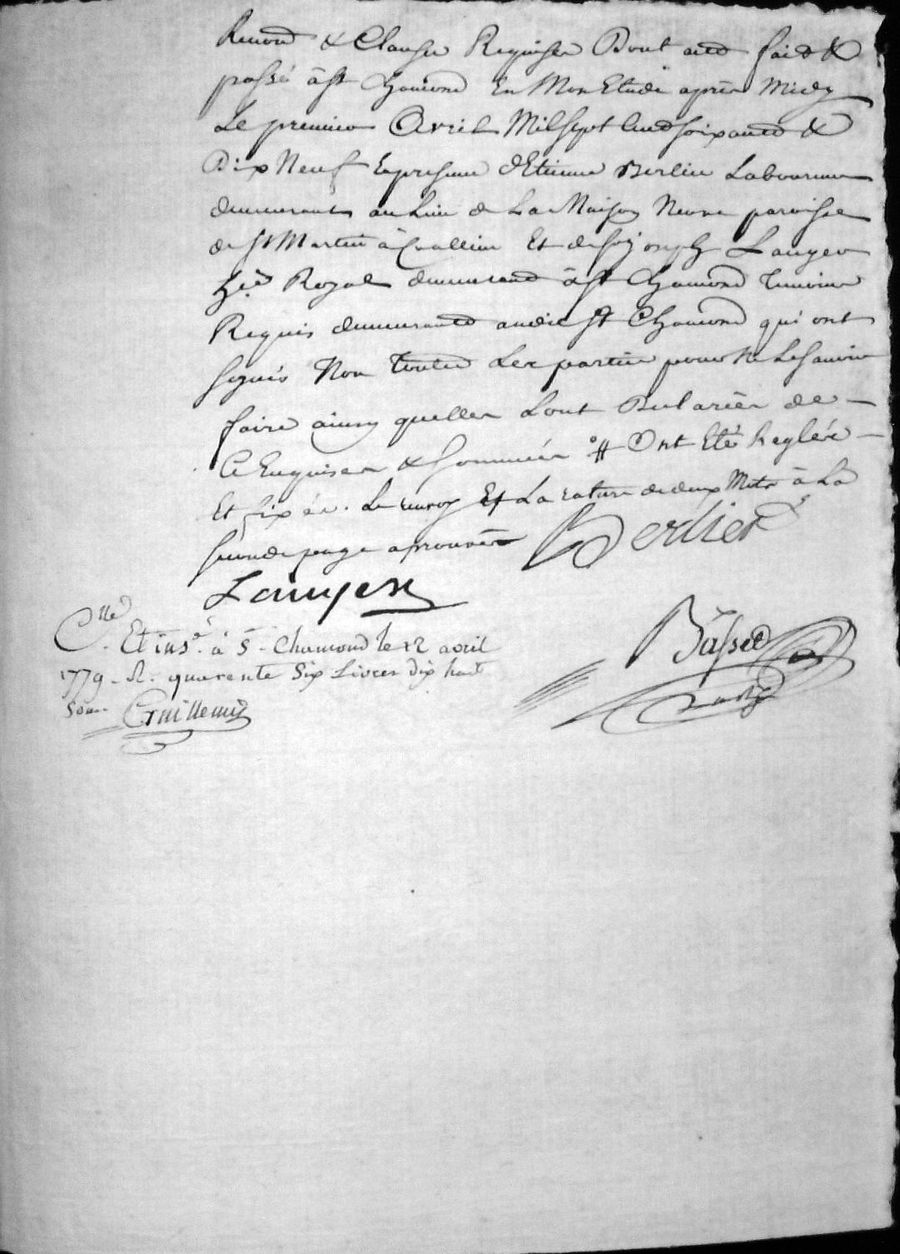 Renond & Clauses Requises Dont acte fait &
passé à St Chamond En Mon Etude après Midy
Le premier Avril Mil Sept Cent soixante &
Dix Neuf En presence d'Etienne Berlier Laboureur
demeurant au Lieu de La Maison Neuve paroisse
de St Martin à Coallieu Et de Sr joseph Laugier
hr. Royal demeurant à St Chamond temoins
Requis demeurants audit St Chamond qui ont
signés Non toutes Les parties pour ne Le sçavoir
faire ainsy quelles L'ont Declarées de
Ce Enquises & Sommées # Ont Eté Reglées
Et fixées. Le renvoy Et La rature de deux Mots à La
seconde page aprouvés Berlier
Laugier
Cllé. Et ins.é à St. Chamond le 12 avril
1779. R. quarente Six Livres dix huit
Sous. Guillemin
Basset
nore